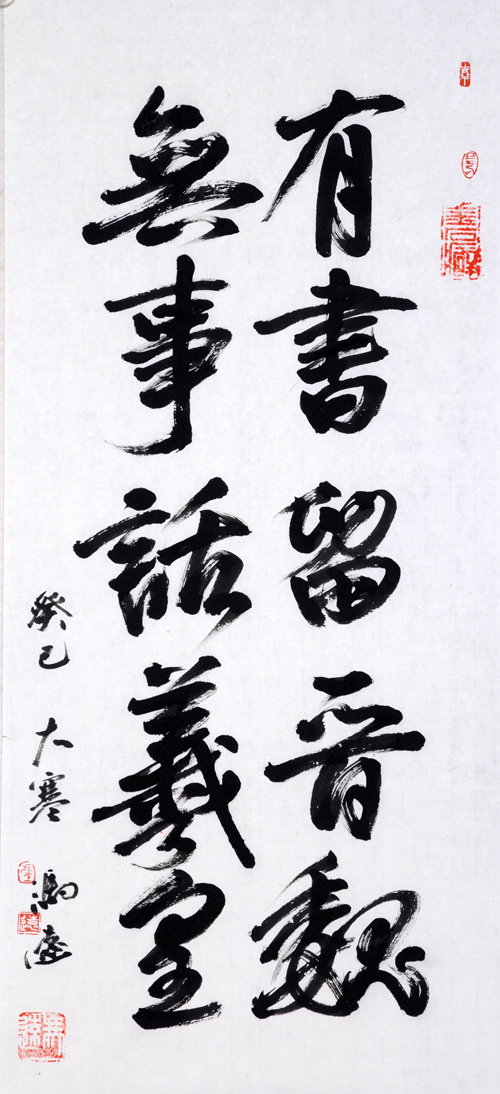 有書留晋魏
無事話羲皇
癸巳 大寒